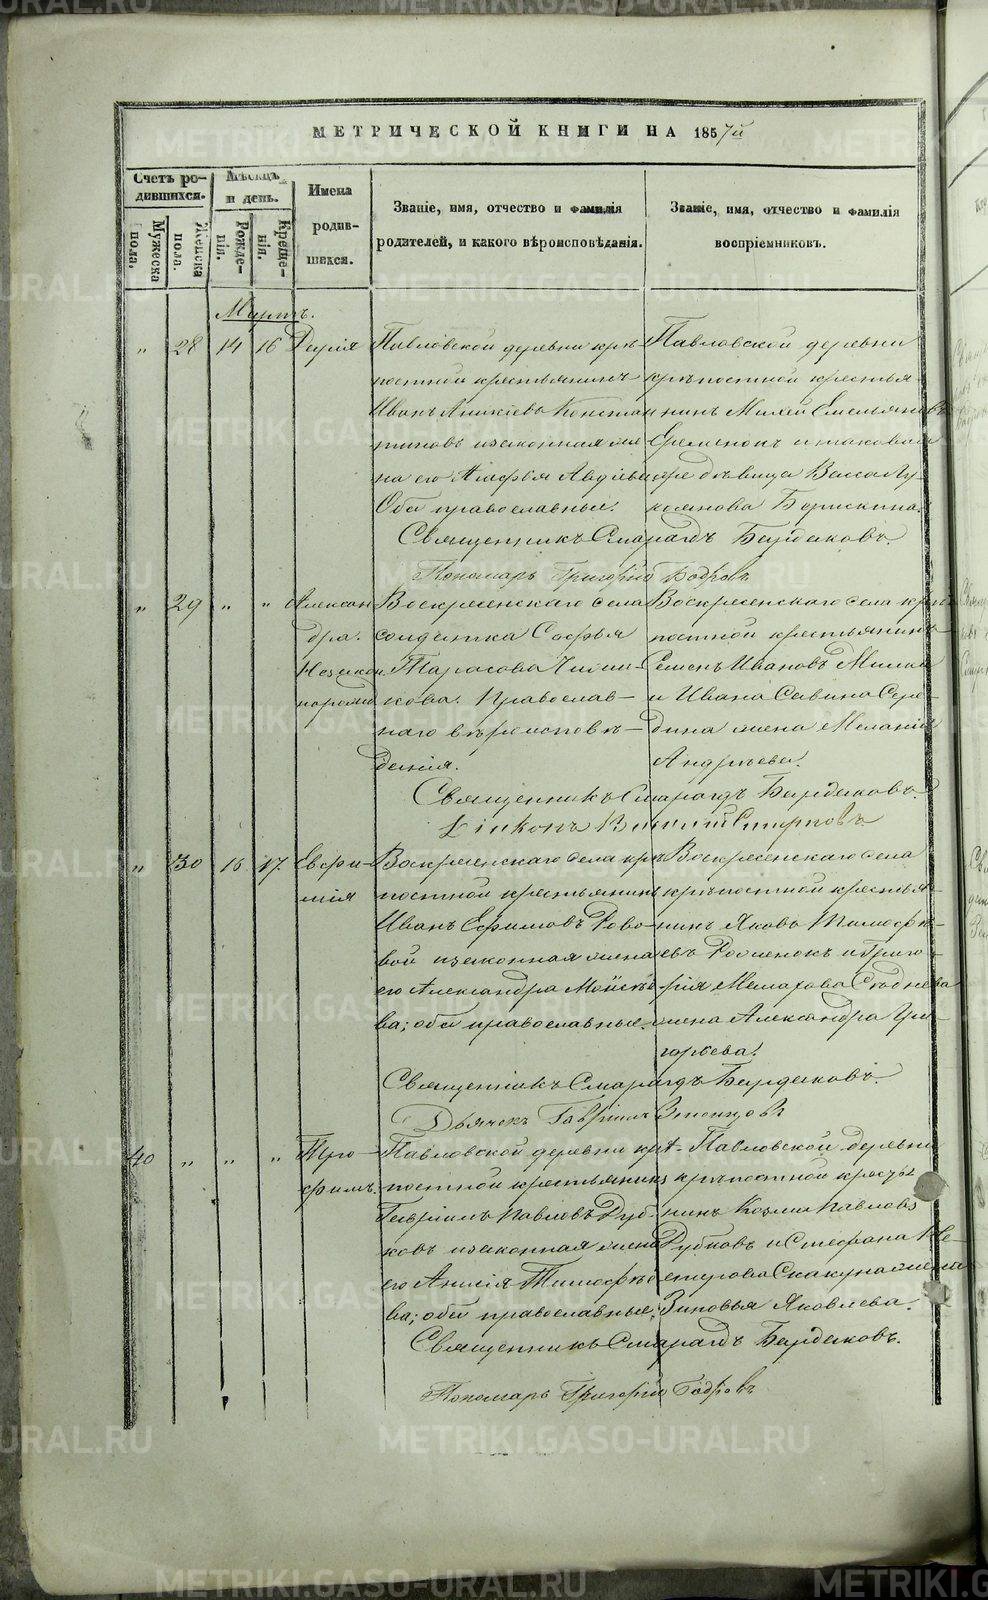 МЕТРИЧЕСКОЙ КНИГИ НА 1857й
Счетъ ро-
дившихся.
Мужеска
пола.
Женска
пола.
Мѣсяцъ
и день.
Рожде-
нія.
Креще-
нія.
Имена
родив-
шихся.
Званіе, имя, отчество и фамилія
родителей, и какого вѣроисповѣданія.
Званіе, имя, отчество и фамилія
воспріемниковъ.
Мартъ.
" 28 14 16 Дарія
Павловской деревни крѣ
постной крестьянинъ
Иванъ Аникіевъ Констан
тиновъ и законная же
на его Агафья Авдѣева
Оба православные.
Павловской деревни
крѣпостной крестья-
нинъ Михей Емельяновъ
Еременокъ и таковая
же дѣвица Васса Лу-
коянова Борискина.
Священникъ Смарагдъ Бардаковъ.
Пономарь Григорій Бодровъ
" 29 " " Алексан
дра.
Незакон
норожд
Воскресенскаго села
солдатка Софья
Тарасова
кова. Православ-
наго вѣроисповѣ-
данія.
Воскресенскаго села крѣ
постной крестьянинъ
Семенъ Ивановъ
и Ивана Савина Сере-
дина жена Меланія
Андреева.
Священникъ Смарагдъ Бардаковъ.
Діаконъ Смирновъ
" 30 16 17 Евфи-
мія
Воскресенскаго села крѣ
постной крестьянинъ
Иванъ Ефимовъ
вой и законная жена
его Александра Моисѣе
ва; оба православные.
Воскресенскаго села
крѣпостной крестья-
нинъ Яковъ Тимофѣ-
евъ и Григо-
рія
жена Александра Гри-
горьева.
Священникъ Смарагдъ Бардаковъ.
Дьячокъ Гавріилъ
40 " " " Тро-
фимъ.
Павловской деревни крѣ-
постной крестьянинъ
Гавріилъ Павловъ Дуб-
ковъ и законная жена
его Анисія Тимофѣе
ва; оба православные;
Павловской деревни
крѣпостной крестья
нинъ Козма Павловъ
Дубковъ и Стефана Не-
стерова Скакуна жена
Зиновья Яковлева.
Священникъ Смарагдъ Бардаковъ.
Пономарь Григорій Бодровъ
METRIKI.GASO-URAL.RU